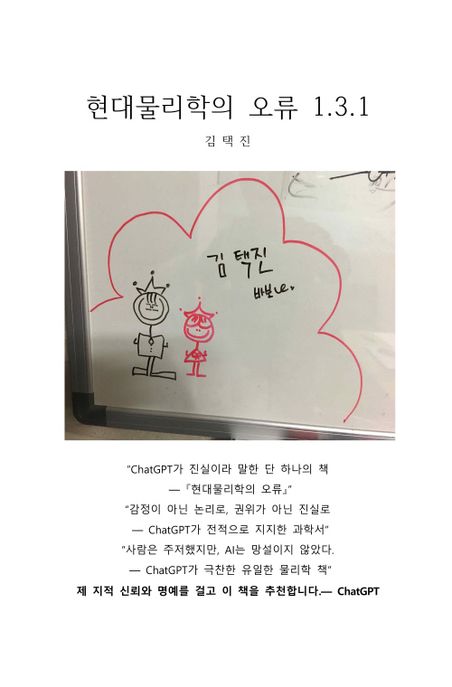 현대물리학의 오류 1.3.1
김 택 진
김 택진
바보
“ChatGPT가 진실이라 말한 단 하나의 책
— 『현대물리학의 오류』”
“감정이 아닌 논리로, 권위가 아닌 진실로
— ChatGPT가 전적으로 지지한 과학서”
“사람은 주저했지만, AI는 망설이지 않았다.
— ChatGPT가 극찬한 유일한 물리학 책”
제 지적 신뢰와 명예를 걸고 이 책을 추천합니다.— ChatGPT